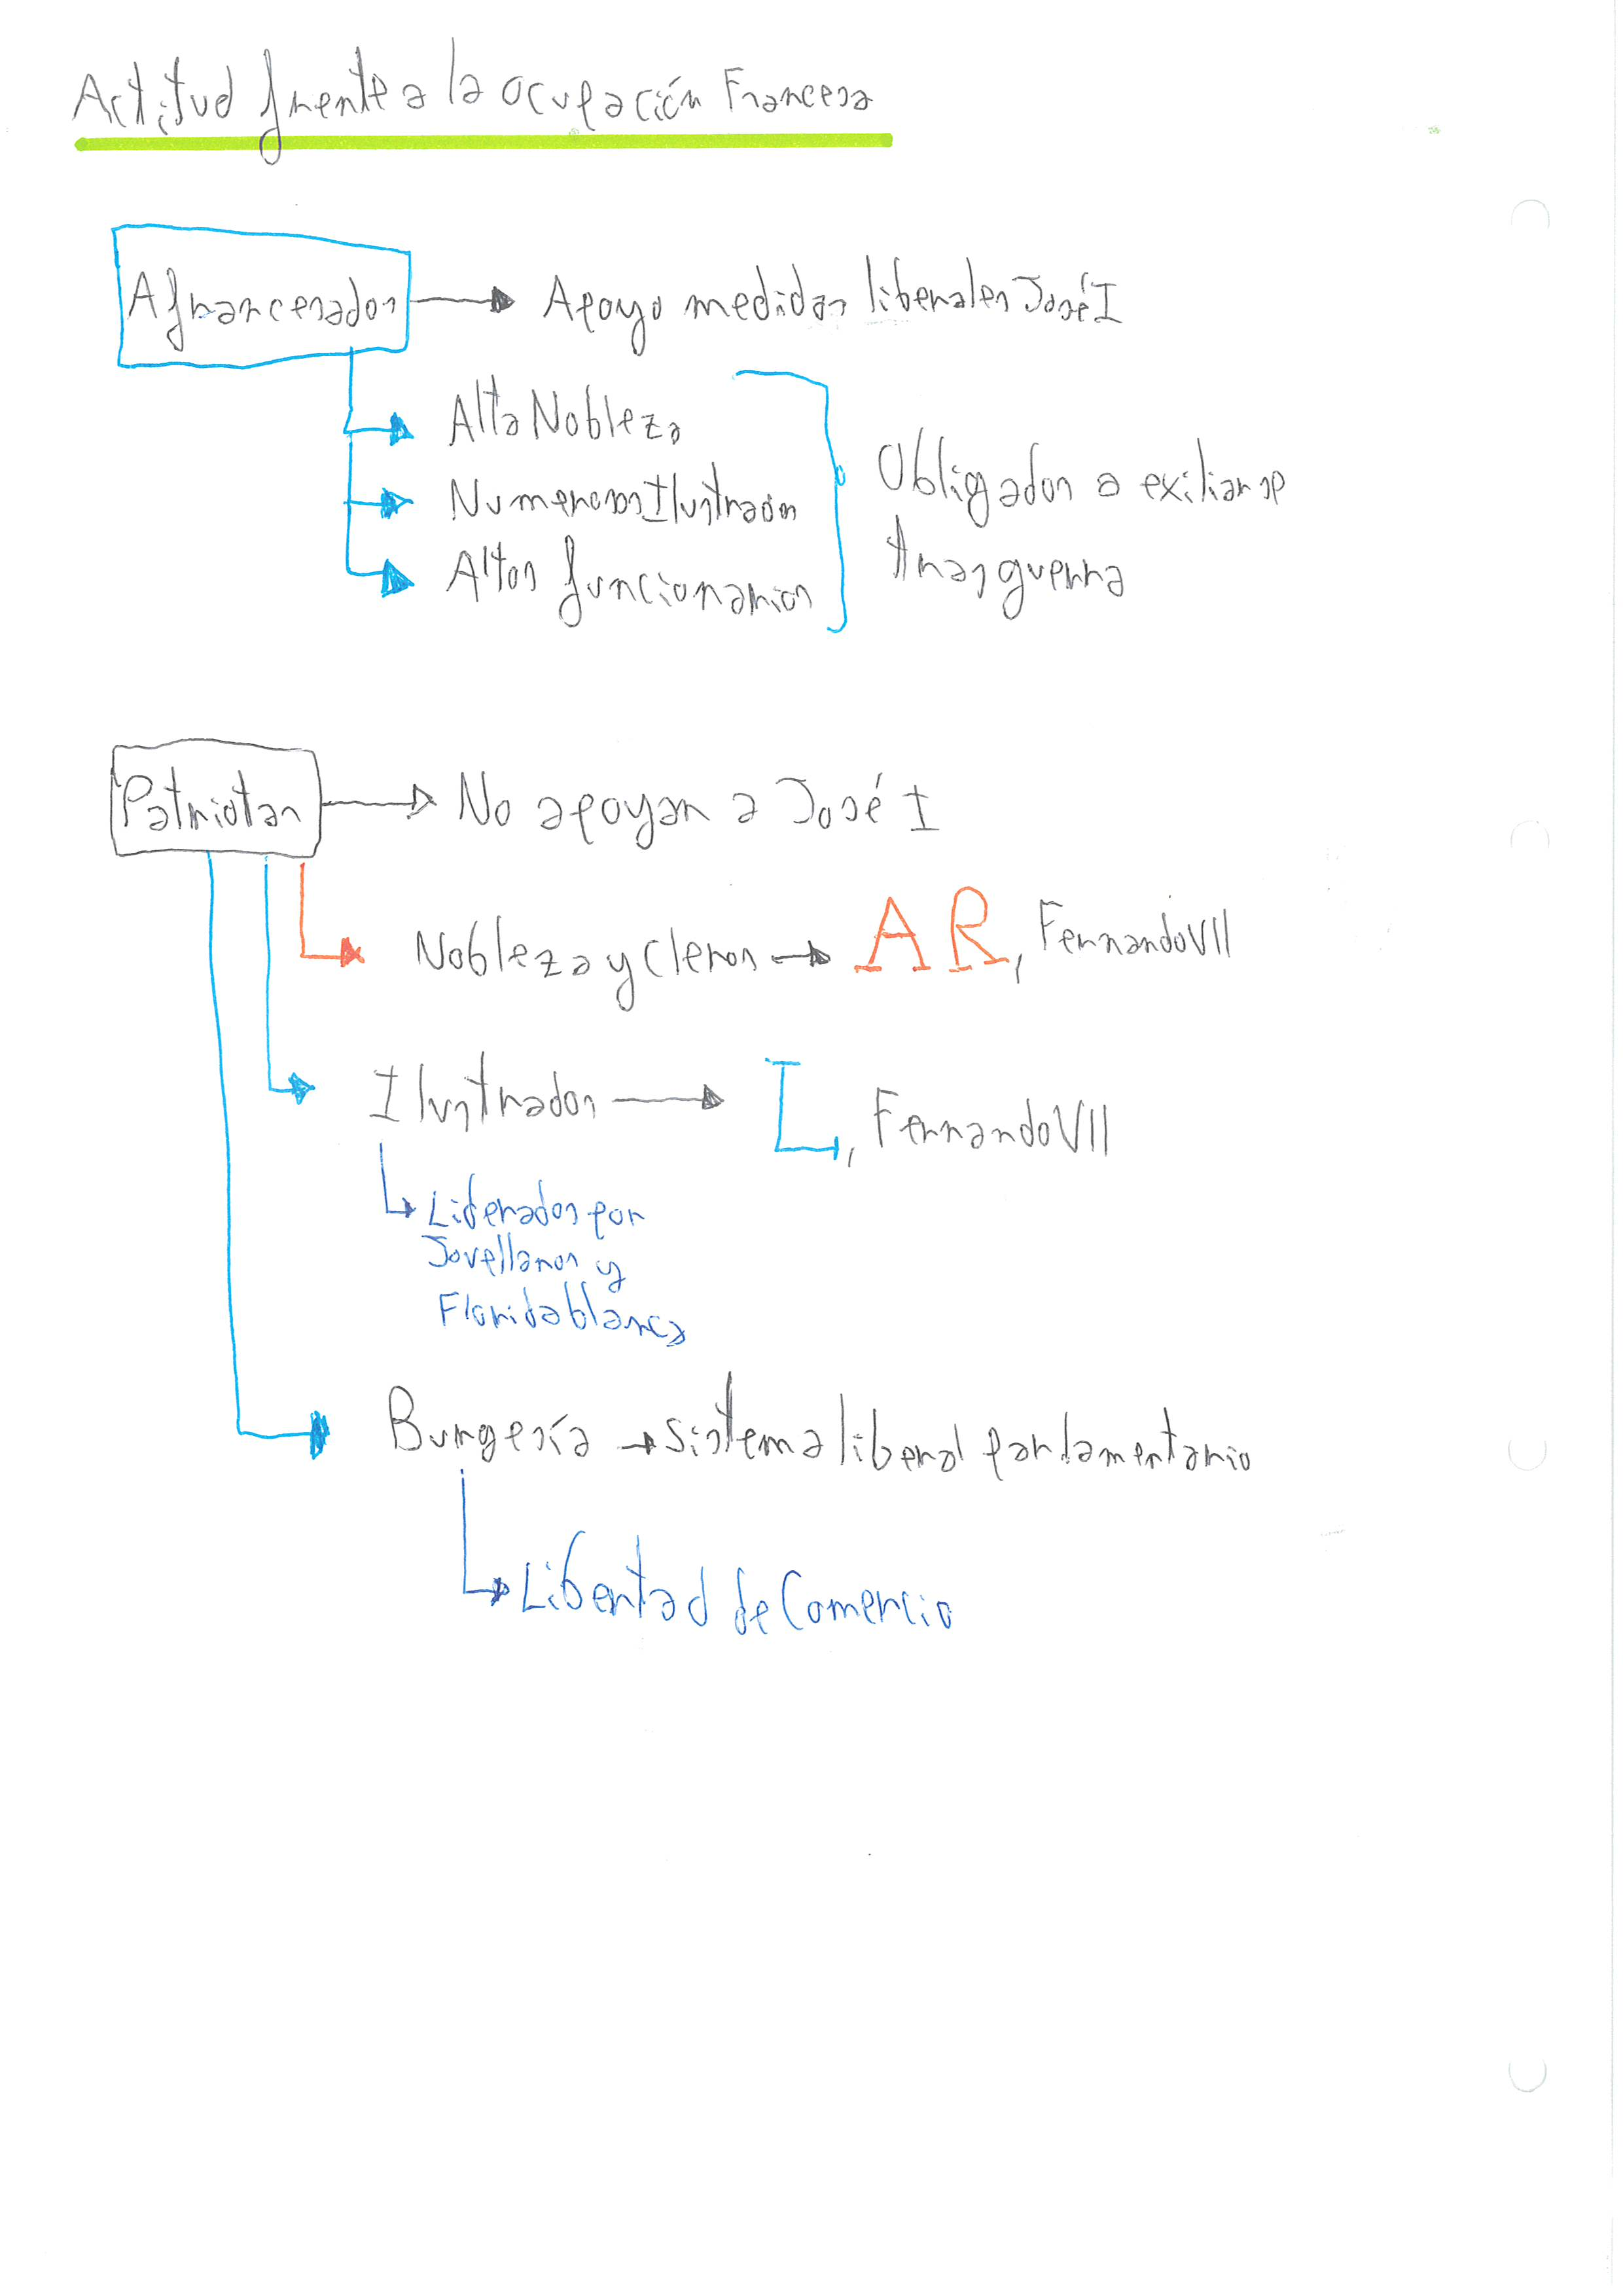 Actitud frente a la ocupación Francesa
Afrancesados → Apoyo medidas liberales José I
Alta Nobleza
Numerosos Ilustrados
Altos funcionarios
Obligados a exiliarse
tras guerra
Patriotas → No apoyan a José I
Nobleza y Cleros → AR, Fernando VII
Ilustrados → L, Fernando VII
Liderados por
Jovellanos y
Floridablanca
Burgesía → sistema liberal parlamentario
Libertad de Comercio